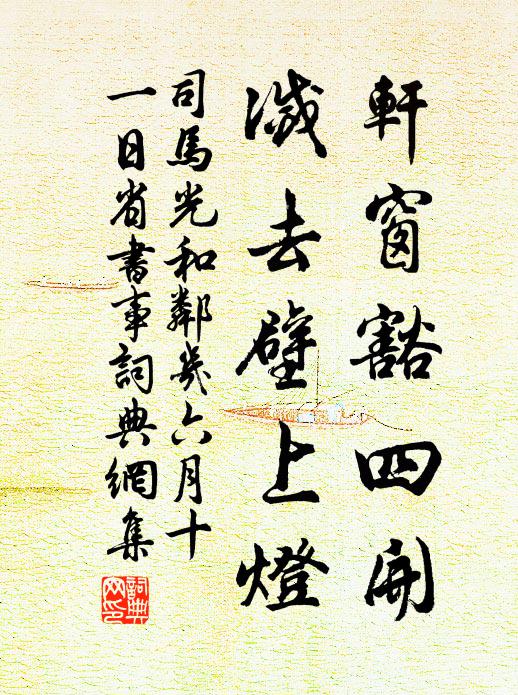 軒窗豁四開
滅去壁上燈
司馬光和鄰幾六月十
一日省書事詞典網集
詞典
网印